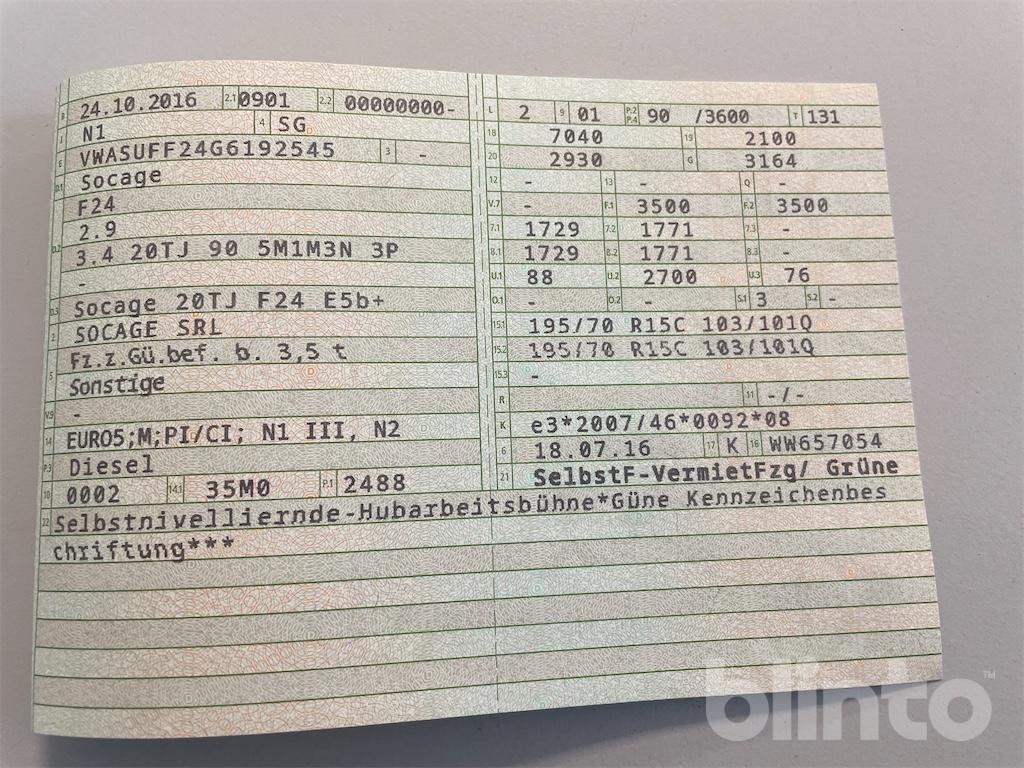 B 24.10.2016 2.1 0901 2.2 00000000-
J N1 4 SG
E VWASUFF24G6192545 3 -
D.1 Socage
F24
2.9
D.2 3.4 20TJ 90 5M1M3N 3P
-
D.3 Socage 20TJ F24 E5b+
2 SOCAGE SRL
5 Fz.z.Gü.bef. b. 3,5 t
Sonstige
V.9 -
14 EURO5;M;PI/CI; N1 III, N2
P.3 Diesel
10 0002 14.1 35M0 P.1 2488
L 2 9 01 P.2 P.4 90 /3600 T 131
18 7040 19 2100
20 2930 G 3164
12 - 13 - Q -
V.7 - F.1 3500 F.2 3500
7.1 1729 7.2 1771 7.3 -
8.1 1729 8.2 1771 8.3 -
U.1 88 U.2 2700 U.3 76
O.1 - O.2 - S.1 3 S.2 -
15.1 195/70 R15C 103/101Q
15.2 195/70 R15C 103/101Q
15.3 -
R 11 -/-
K e3*2007/46*0092*08
6 18.07.16 17 K 16 WW657054
21 SelbstF-VermietFzg/ Grüne
22 Selbstnivelliernde-Hubarbeitsbühne*Güne Kennzeichenbes
chriftung***
blinto™